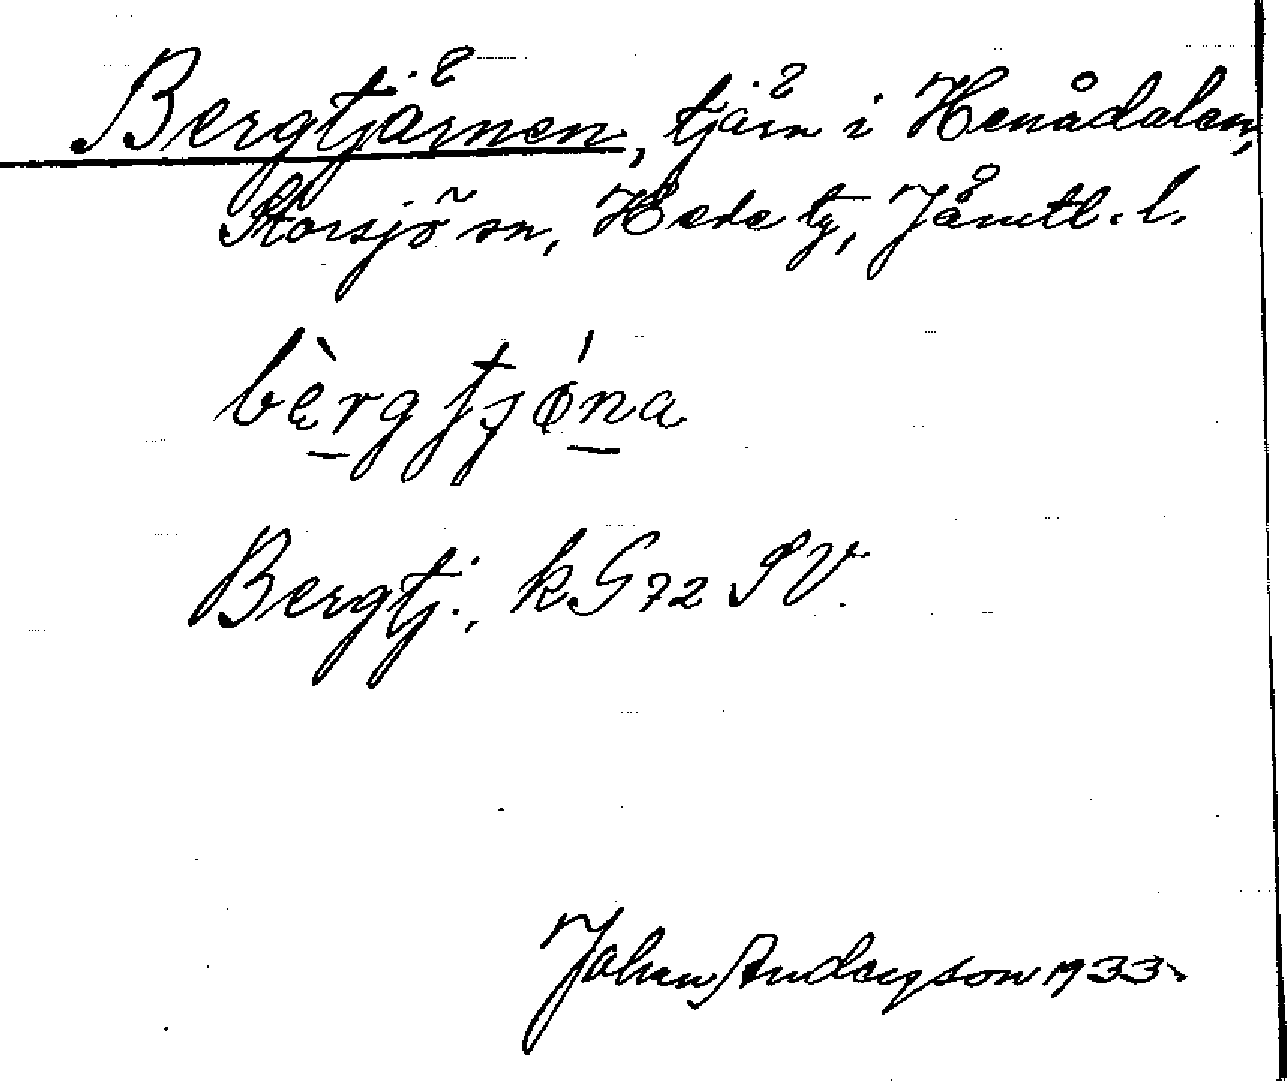 Bergtjärnen, tjärn i Henådalen,
Storsjö sn, Hede tg, Jämtl. l.
bèrgtjǿna
Bergtj., kG 72 SV.
Johan Andersson 1933.